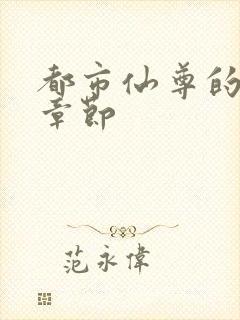 都市仙尊的
章節
范永偉